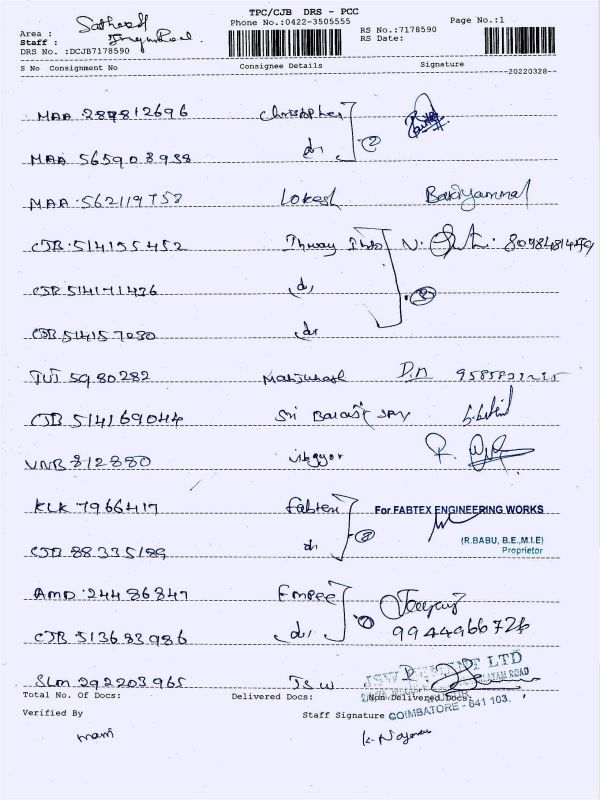 TPC/CJB DRS - PCC
Phone No.:0422-3505555
Page No.:1
Area :
Staff :
DRS No. :DCJB7178590
RS No.:7178590
RS Date:
S No Consignment No Consignee Details Signature
--20220328--
MAA 289812696 Christopher
MAA 565908938 do
MAA 562119758 Lokesh Bakiyammal
CJB 514155452 N.
CJB 514171436 do
CJB 514157030 do
TUT 5980282 D.M
CJB 514169044 Sri Balaji
VNB 812880 vibgyor
KLK 7966417 Fabtex For FABTEX ENGINEERING WORKS
CJB 88335189 do (R.BABU, B.E.,M.I.E)
Proprietor
AMD 24486847 Empee
CJB 513683986 do 9944966726
SLM 292203965 JSW
LTD
COIMBATORE - 641 103.
Total No. Of Docs: Delivered Docs: Non Delivered Docs:
Verified By Staff Signature
mani